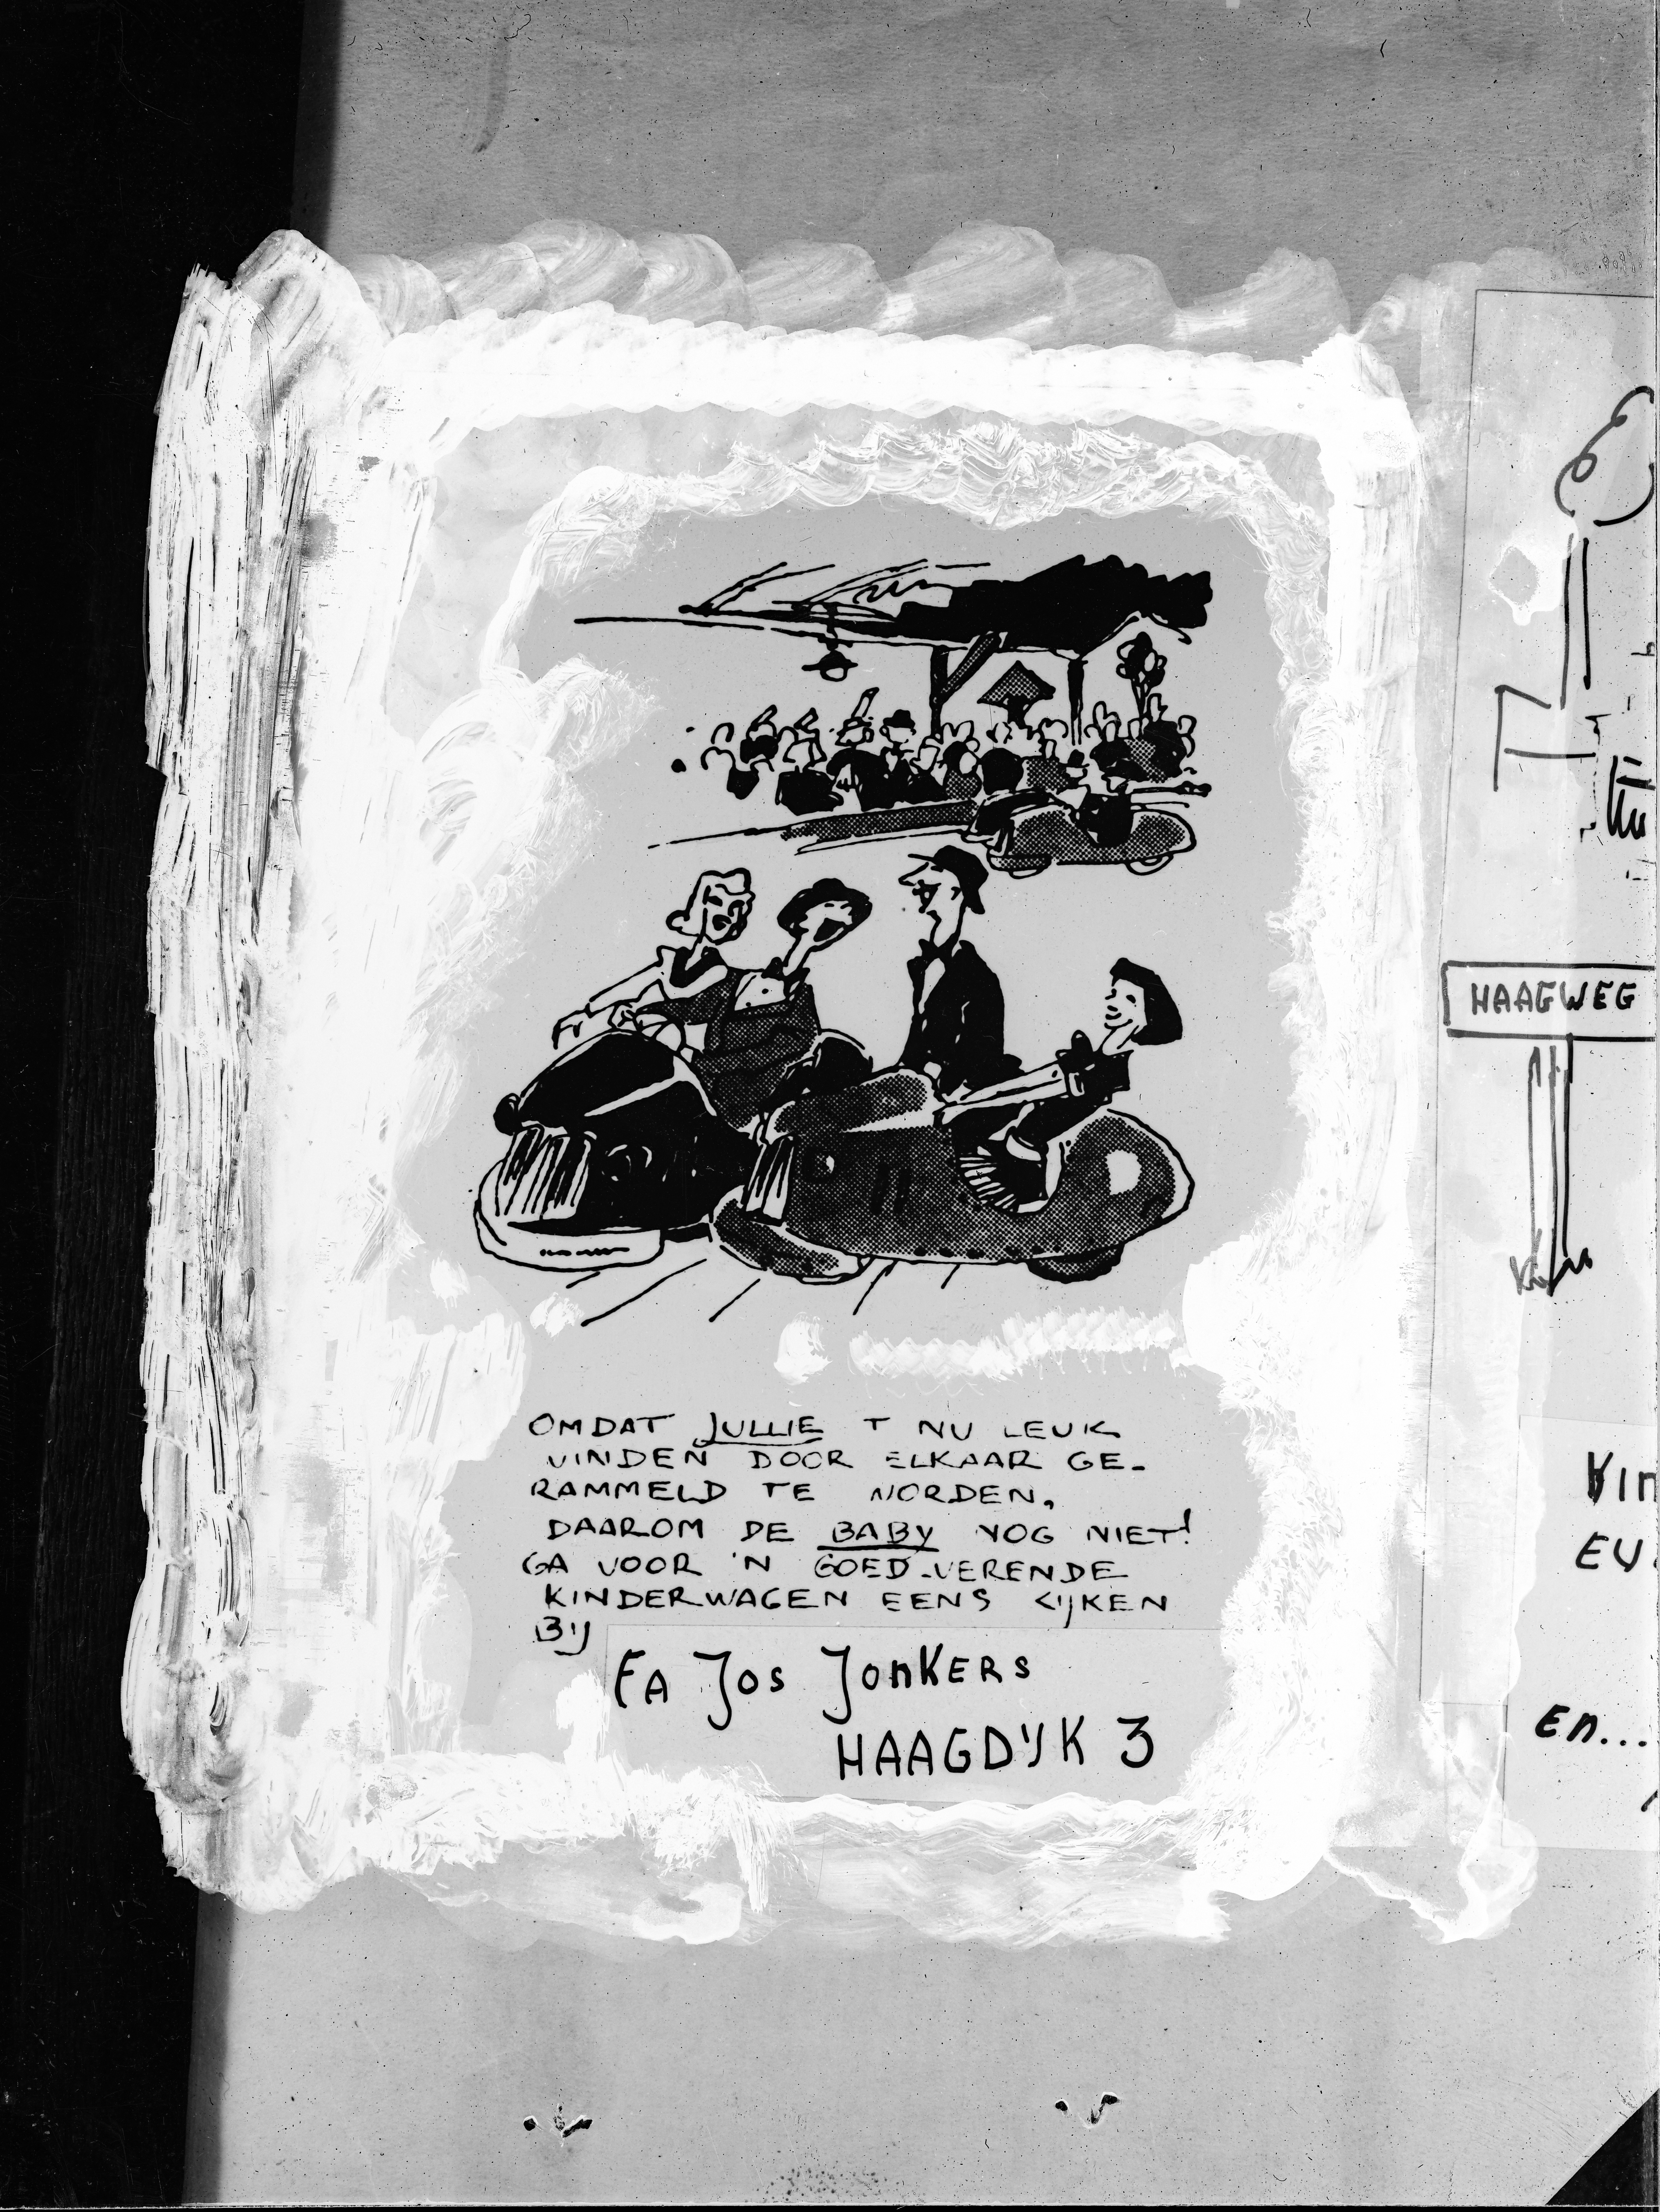 OMDAT JULLIE T NU LEUK
VINDEN DOOR ELKAAR GE-
RAMMELD TE WORDEN,
DAAROM DE BABY NOG NIET!
GA VOOR 'N GOED-VERENDE
KINDERWAGEN EENS KIJKEN
BIJ
FA JOS JONKERS
HAAGDIJK 3
HAAGWEG
EN...